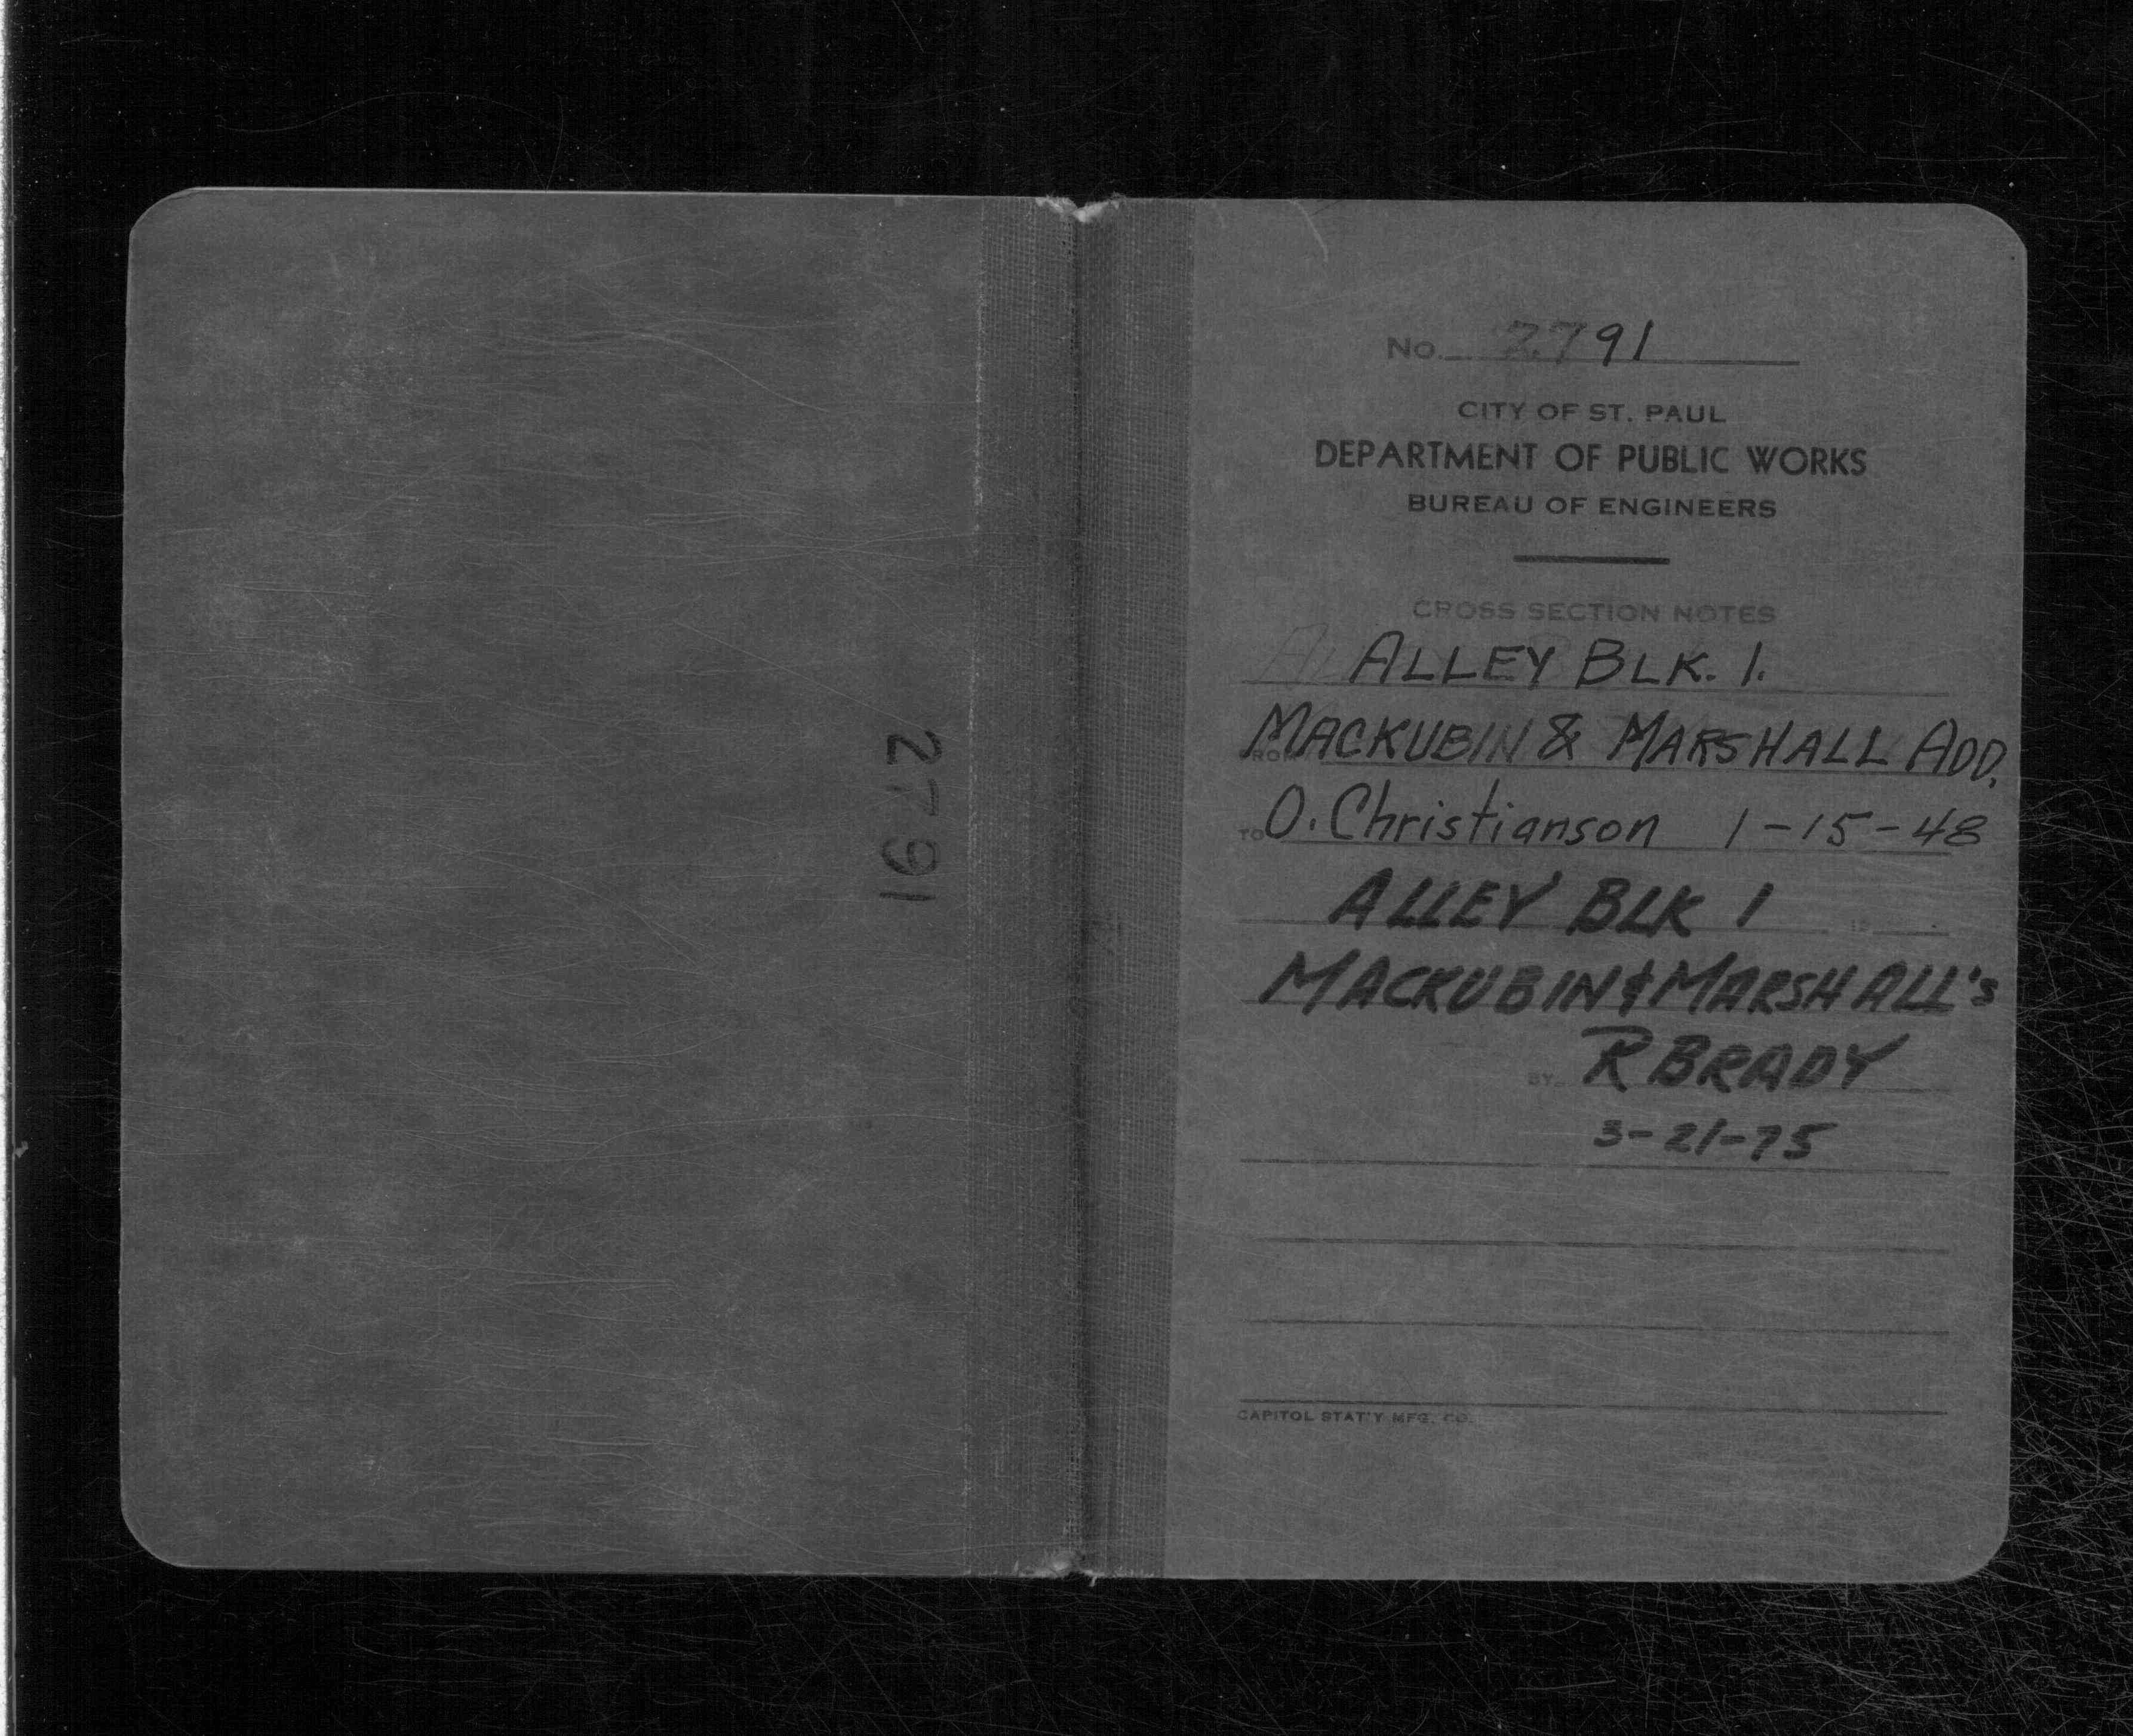 2791
No. 2791
CITY OF ST. PAUL
DEPARTMENT OF PUBLIC WORKS
BUREAU OF ENGINEERS
CROSS SECTION NOTES
ALLEY BLK. 1.
FROM MACKUBIN & MARSHALL ADD.
TO O. Christianson 1-15-48
ALLEY BLK 1 19
MACKUBIN & MARSHALL's
BY R BRADY
3-21-75
CAPITOL STAT'Y MFG. CO.